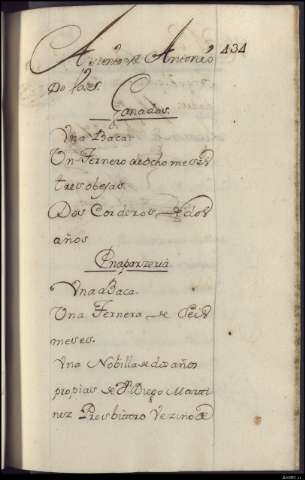 Asiento de Antonio 434
Do Pazo.
Ganados.
Vna Baca.
Un Ternero de ocho meses
tres obejas.
Dos Corderos de dos
años
En aparzeria
Vna Baca.
Una Ternera de seis
meses.
Vna Nobilla de dos años
propias de Dn Diego Marti
nez Presbitero Vezino de